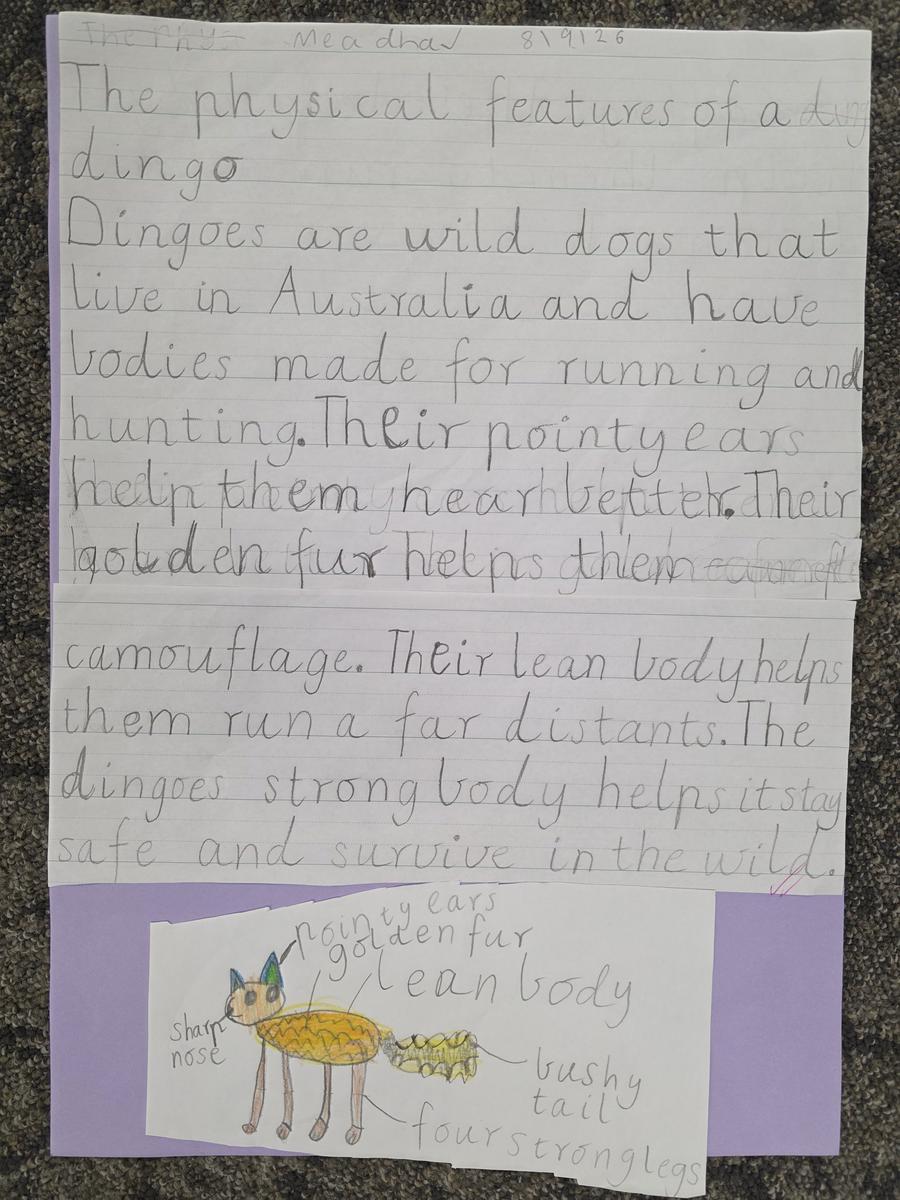 The Phy- Meadhav 8\9\26
The physical features of a ding
dingo
Dingoes are wild dogs that
live in Australia and have
bodies made for running and
hunting. Their pointy ears
help them hear better. Their
golden fur helps them
camouflage. Their lean body helps
them run a far distants. The
dingoes strong body helps it stay
safe and survive in the wild.
pointy ears
golden fur
lean body
sharp
nose
bushy
tail
four strong legs